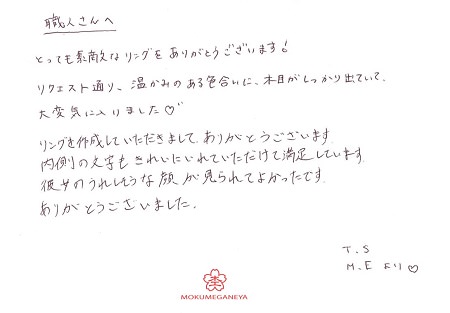 職人さんへ
とっても素敵なリングをありがとうございます！
リクエスト通り、温かみのある色合いに、木目がしっかり出ていて、
大変気に入りました♡
リングを作成していただきまして、ありがとうございます
内側の文字もきれいにいれていただけて満足しています。
彼女のうれしそうな顔が見られてよかったです。
ありがとうございました。
T.S
M.E より♡
MOKUMEGANEYA